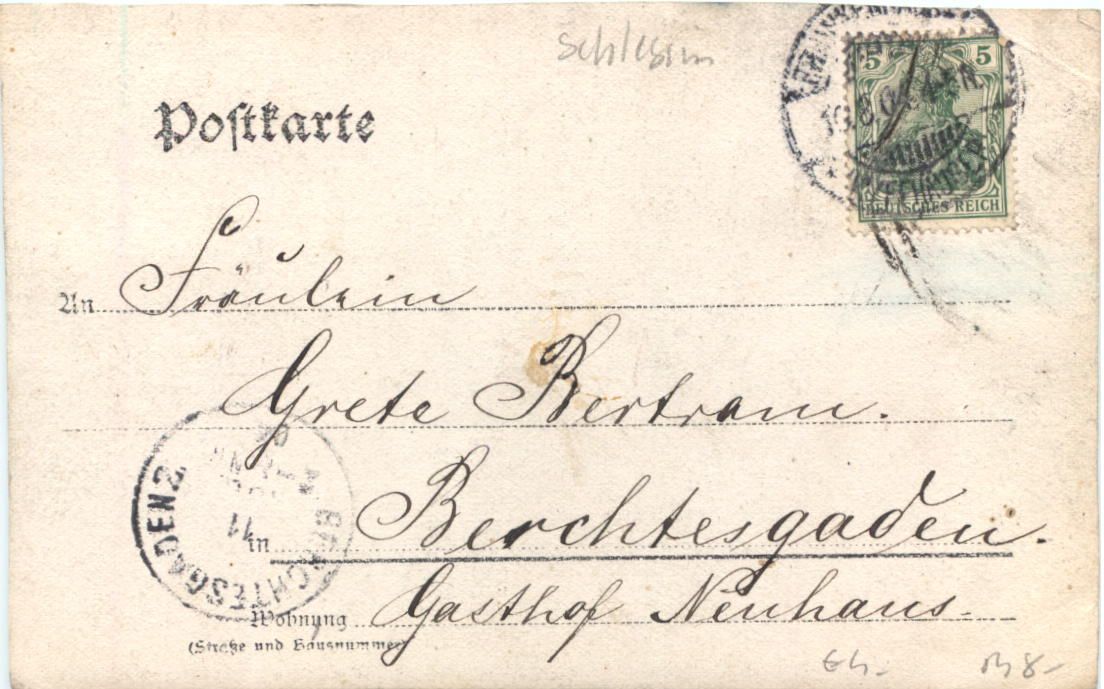 Schlesien
5 5
DEUTSCHES REICH
Postkarte
An Fräulein
Grete Bertram.
in Berchtesgaden.
Wohnung Gasthof Neuhaus.
(Straße und Hausnummer)
BERCHTESGADEN 2
11